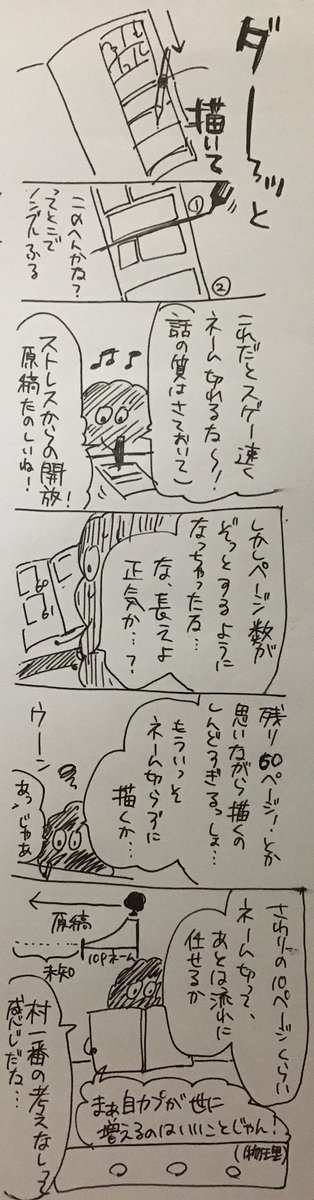 ダーーッと
描いて
①
このへんかな?
ってとこで
ノンブルふる
②
これだとスゲー速く
ネーム切れるな〜!
(話の質はさておいて)
ストレスからの開放!
原稿たのしいね!
しかしページ数が
ぞっとするように
なっちゃったな…
な、長えよ
正気か…?
60
61
残り60ページ!とか
思いながら描くの
しんどすぎるっしょ…
もういっそ
ネーム切らずに
描くか…
ウーン
あっじゃあ
さわりの10ページくらい
ネーム切って、
あとは流れに
任せるか
原稿
未知
10Pネーム
まぁ自カプが世に
増えるのはいいことじゃん!
(物理)
村一番の考えなしって
感じだな…